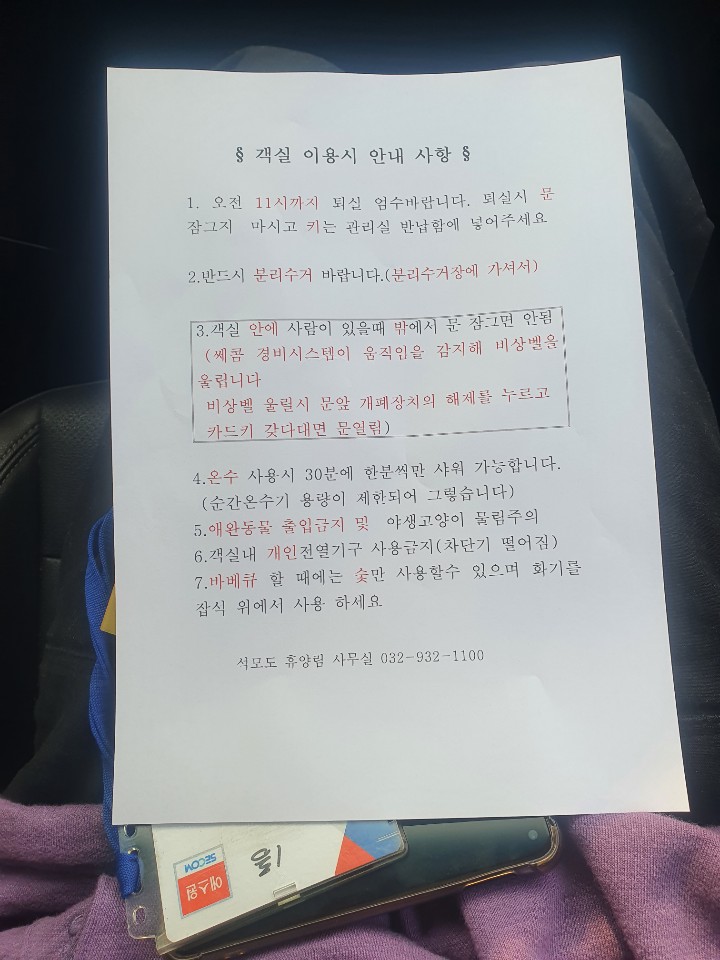 § 객실 이용시 안내 사항 §
1. 오전 11시까지 퇴실 엄수바랍니다. 퇴실시 문
잠그지 마시고 키는 관리실 반납함에 넣어주세요
2.반드시 분리수거 바랍니다.(분리수거장에 가셔서)
3.객실 안에 사람이 있을때 밖에서 문 잠그면 안됨
(쎄콤 경비시스템이 움직임을 감지해 비상벨을
울립니다
비상벨 울릴시 문앞 개폐장치의 해제를 누르고
카드키 갖다대면 문열림)
4.온수 사용시 30분에 한분씩만 샤워 가능합니다.
(순간온수기 용량이 제한되어 그렇습니다)
5.애완동물 출입금지 및 야생고양이 물림주의
6.객실내 개인전열기구 사용금지(차단기 떨어짐)
7.바베큐 할 때에는 숯만 사용할수 있으며 화기를
잡식 위에서 사용 하세요
석모도 휴양림 사무실 032-932-1100
에스원
SECOM